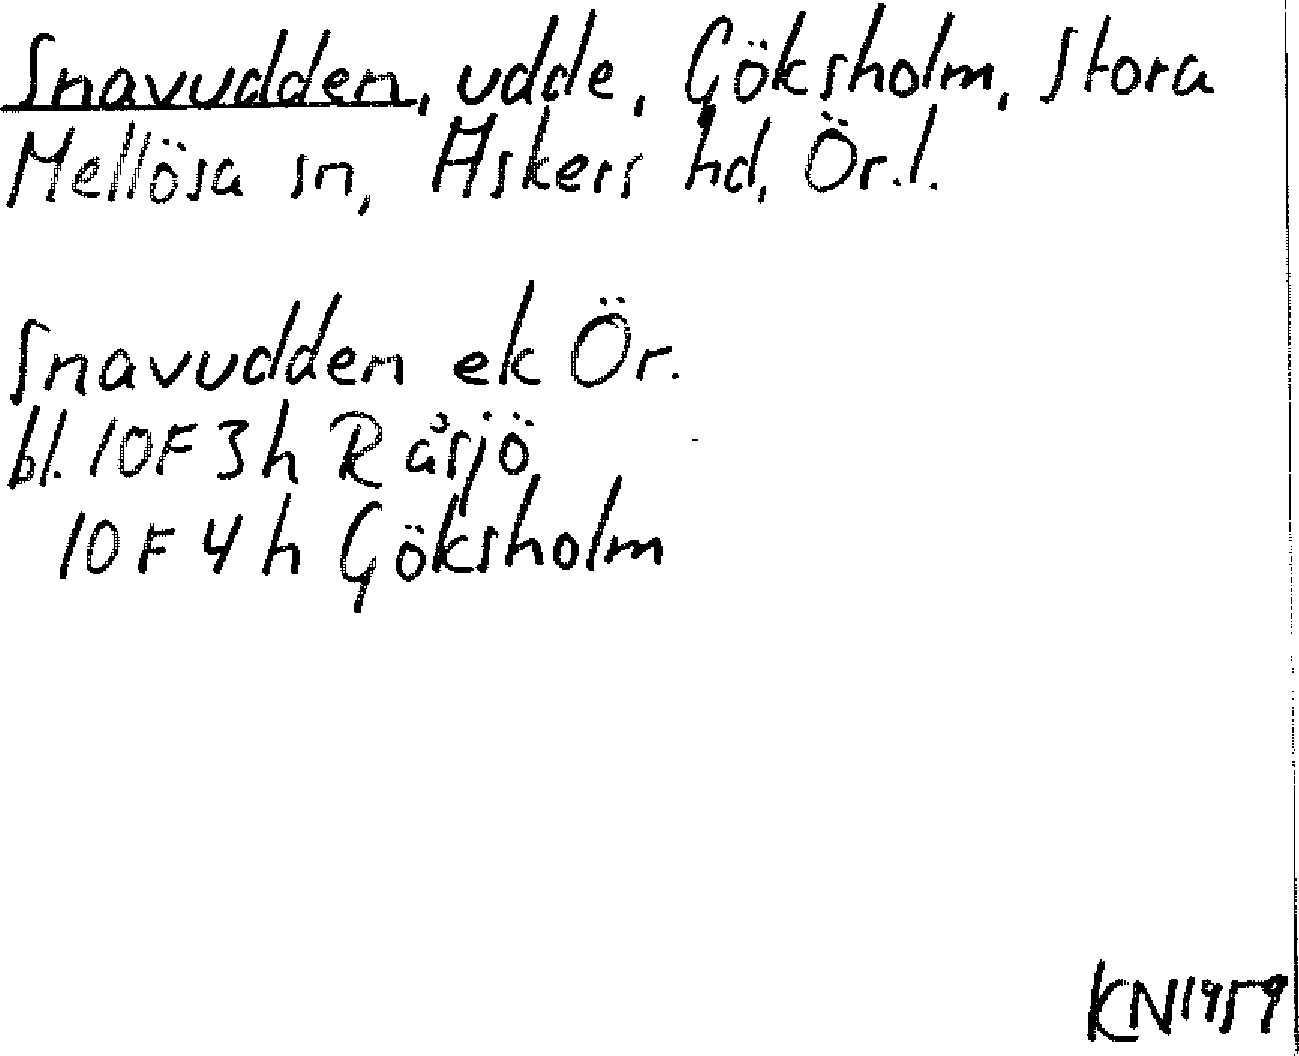 Snavudden, udde, Göksholm, Stora
Mellösa sn, Askers hd, Ör.l.
Snavudden ek Ör.
bl. 10F 3h Råsjö
10F 4h Göksholm
KN1959